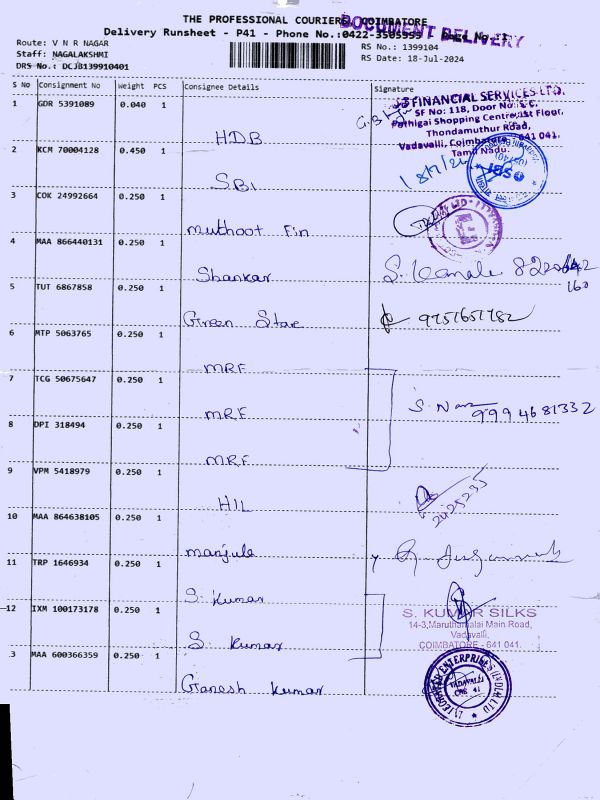 THE PROFESSIONAL COURIERS, COIMBATORE
DOCUMENT DELIVERY
Delivery Runsheet - P41 - Phone No.:0422-3505999 - Page No.:1
Route: V N R NAGAR
Staff: NAGALAKSHMI
DRS No.: DCJB139910401
RS No.: 1399104
RS Date: 18-Jul-2024
S No Consignment No Weight PCS Consignee Details Signature
1 GDR 5391089 0.040 1 HDB
FINANCIAL SERVICES LTD.
SF No: 118, Door No:
Pathigai Shopping Centre, 1st Floor,
Thondamuthur Road,
Vadavalli, Coimbatore 641 041.
Tamil Nadu.
2 KCM 70004128 0.450 1 SBI
SBI
3 COK 24992664 0.250 1 Muthoot Fin
4 MAA 866440131 0.250 1 Shankar
5 TUT 6867858 0.250 1 Green Star 9751651782
6 MTP 5063765 0.250 1 MRF
7 TCG 50675647 0.250 1 MRF 9994681332
8 DPI 318494 0.250 1 MRF
9 VPM 5418979 0.250 1 HIL
10 MAA 864638105 0.250 1 Manjula
11 TRP 1646934 0.250 1 S. Kumar
12 IXM 100173178 0.250 1 S. Kumar
S. KUMAR SILKS
14-3,Maruthamalai Main Road,
Vadavalli,
COIMBATORE - 641 041.
3 MAA 600366359 0.250 1 Ganesh Kumar
VADAVALLI
CBE 41